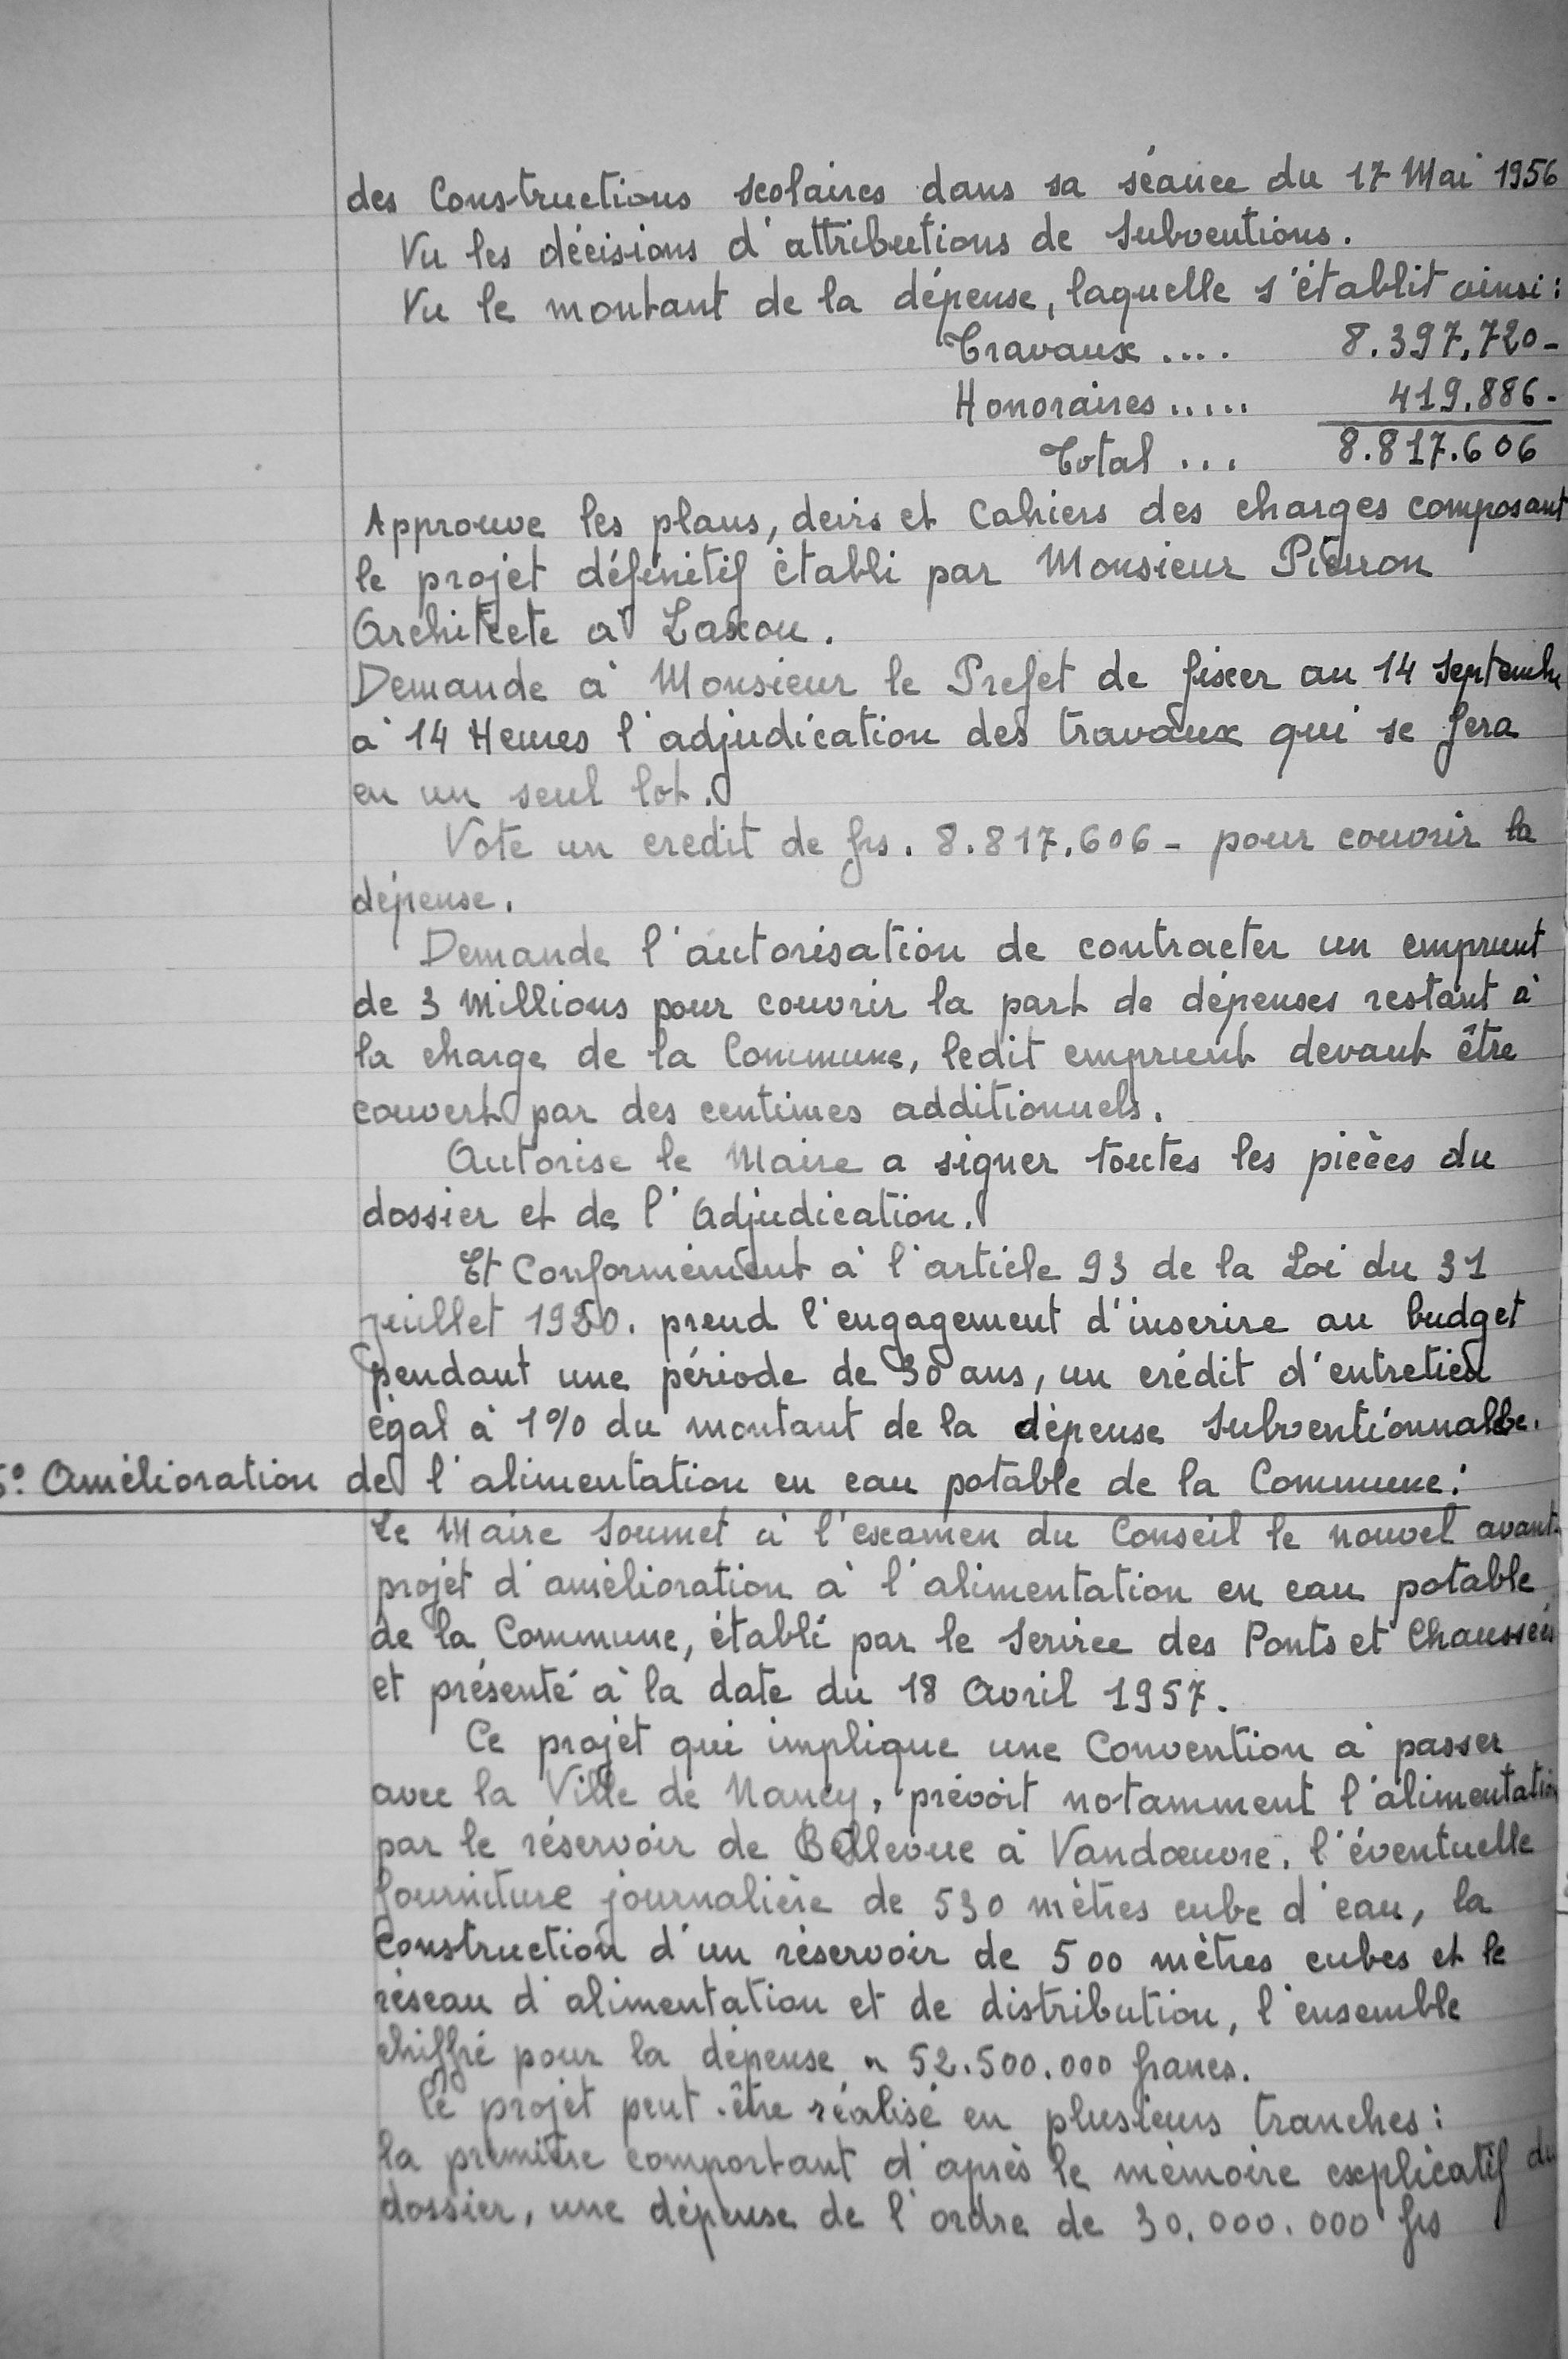 des Constructions scolaires dans sa séance du 17 Mai 1956
Vu les décisions d'attributions de subventions.
Vu le montant de la dépense, laquelle s'établit ainsi :
Travaux .... 8.397.720-
Honoraires ..... 419.886-
Total ... 8.817.606
Approuve les plans, devis et Cahiers des charges composant
le projet définitif établi par Monsieur Pierron
Architecte à Laxou.
Demande à Monsieur le Prefet de fixer au 14 Septembre
à 14 Heures l'adjudication des travaux qui se fera
en un seul lot.
Vote un credit de frs. 8.817.606- pour couvrir la
dépense.
Demande l'autorisation de contracter un emprunt
de 3 Millions pour couvrir la part de dépenses restant à
la charge de la Commune, ledit emprunt devant être
couvert par des centimes additionnels.
Autorise le Maire a signer toutes les pièces du
dossier et de l'Adjudication.
Et Conformément à l'article 93 de la Loi du 31
juillet 1920. prend l'engagement d'inscrire au budget
pendant une période de 30 ans, un crédit d'entretien
égal à 1% du montant de la dépense subventionnable.
5° Amélioration de l'alimentation en eau potable de la Commune :
Le Maire soumet à l'examen du Conseil le nouvel avant-
projet d'amélioration à l'alimentation en eau potable
de la Commune, établi par le Service des Ponts et Chaussées
et présenté à la date du 18 Avril 1957.
Ce projet qui implique une Convention à passer
avec la Ville de Nancy, prévoit notamment l'alimentation
par le réservoir de Bellevue à Vandœuvre, l'éventuelle
fourniture journalière de 530 mètres cube d'eau, la
construction d'un réservoir de 500 mètres cubes et le
réseau d'alimentation et de distribution, l'ensemble
chiffré pour la dépense à 52.500.000 francs.
Le projet peut-être réalisé en plusieurs tranches :
la première comportant d'après le mémoire explicatif du
dossier, une dépense de l'ordre de 30.000.000 frs